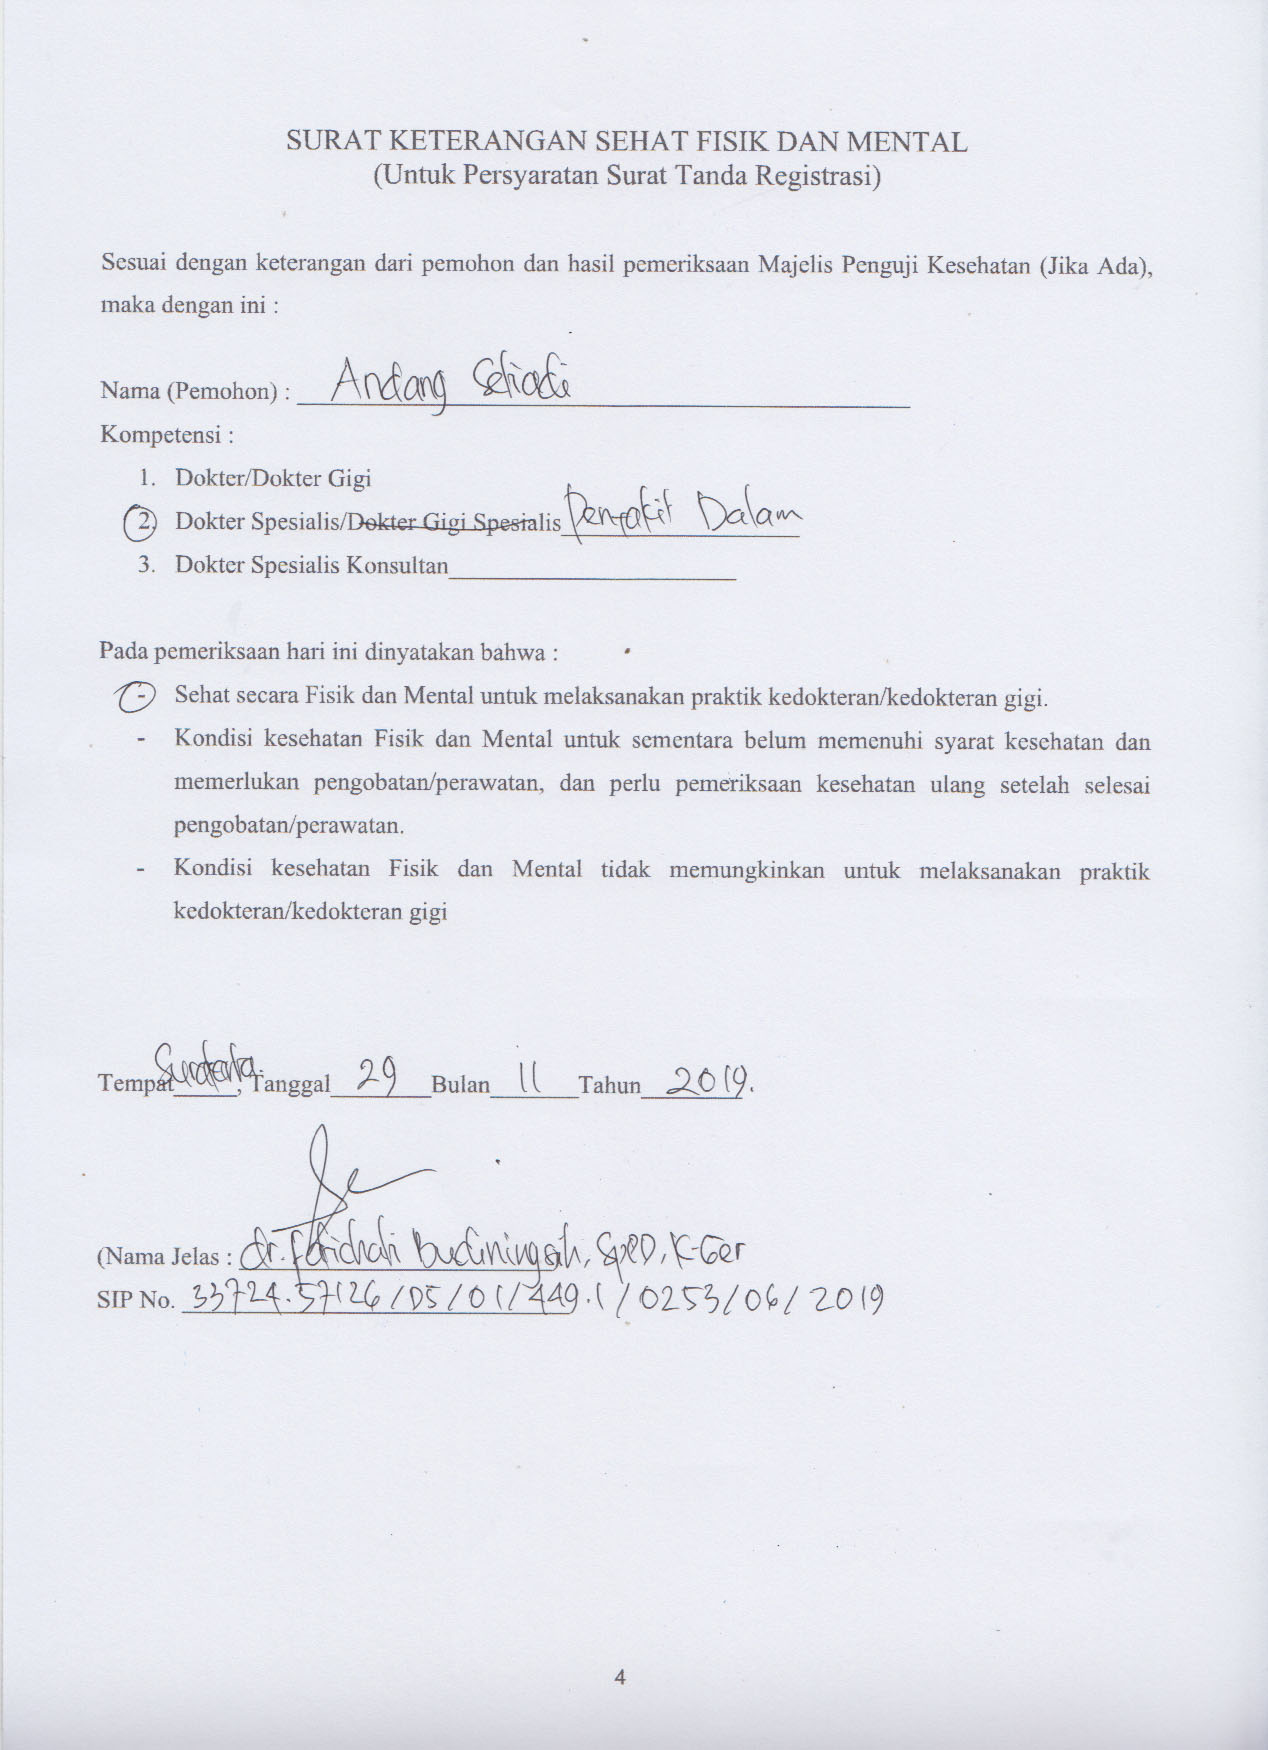 SURAT KETERANGAN SEHAT FISIK DAN MENTAL
(Untuk Persyaratan Surat Tanda Registrasi)
Sesuai dengan keterangan dari pemohon dan hasil pemeriksaan Majelis Penguji Kesehatan (Jika Ada),
maka dengan ini :
Nama (Pemohon) : Andang Setiadi
Kompetensi :
1. Dokter/Dokter Gigi
2. Dokter Spesialis/Dokter Gigi Spesialis Penyakit Dalam
3. Dokter Spesialis Konsultan
Pada pemeriksaan hari ini dinyatakan bahwa :
- Sehat secara Fisik dan Mental untuk melaksanakan praktik kedokteran/kedokteran gigi.
- Kondisi kesehatan Fisik dan Mental untuk sementara belum memenuhi syarat kesehatan dan
memerlukan pengobatan/perawatan, dan perlu pemeriksaan kesehatan ulang setelah selesai
pengobatan/perawatan.
- Kondisi kesehatan Fisik dan Mental tidak memungkinkan untuk melaksanakan praktik
kedokteran/kedokteran gigi
Tempat Surakarta, Tanggal 29 Bulan 11 Tahun 2019.
(Nama Jelas : dr. Fatichati Budiningsih, SpPD, K-Ger
SIP No. 33724.57126/DS/01/449.1/0253/06/2019
4